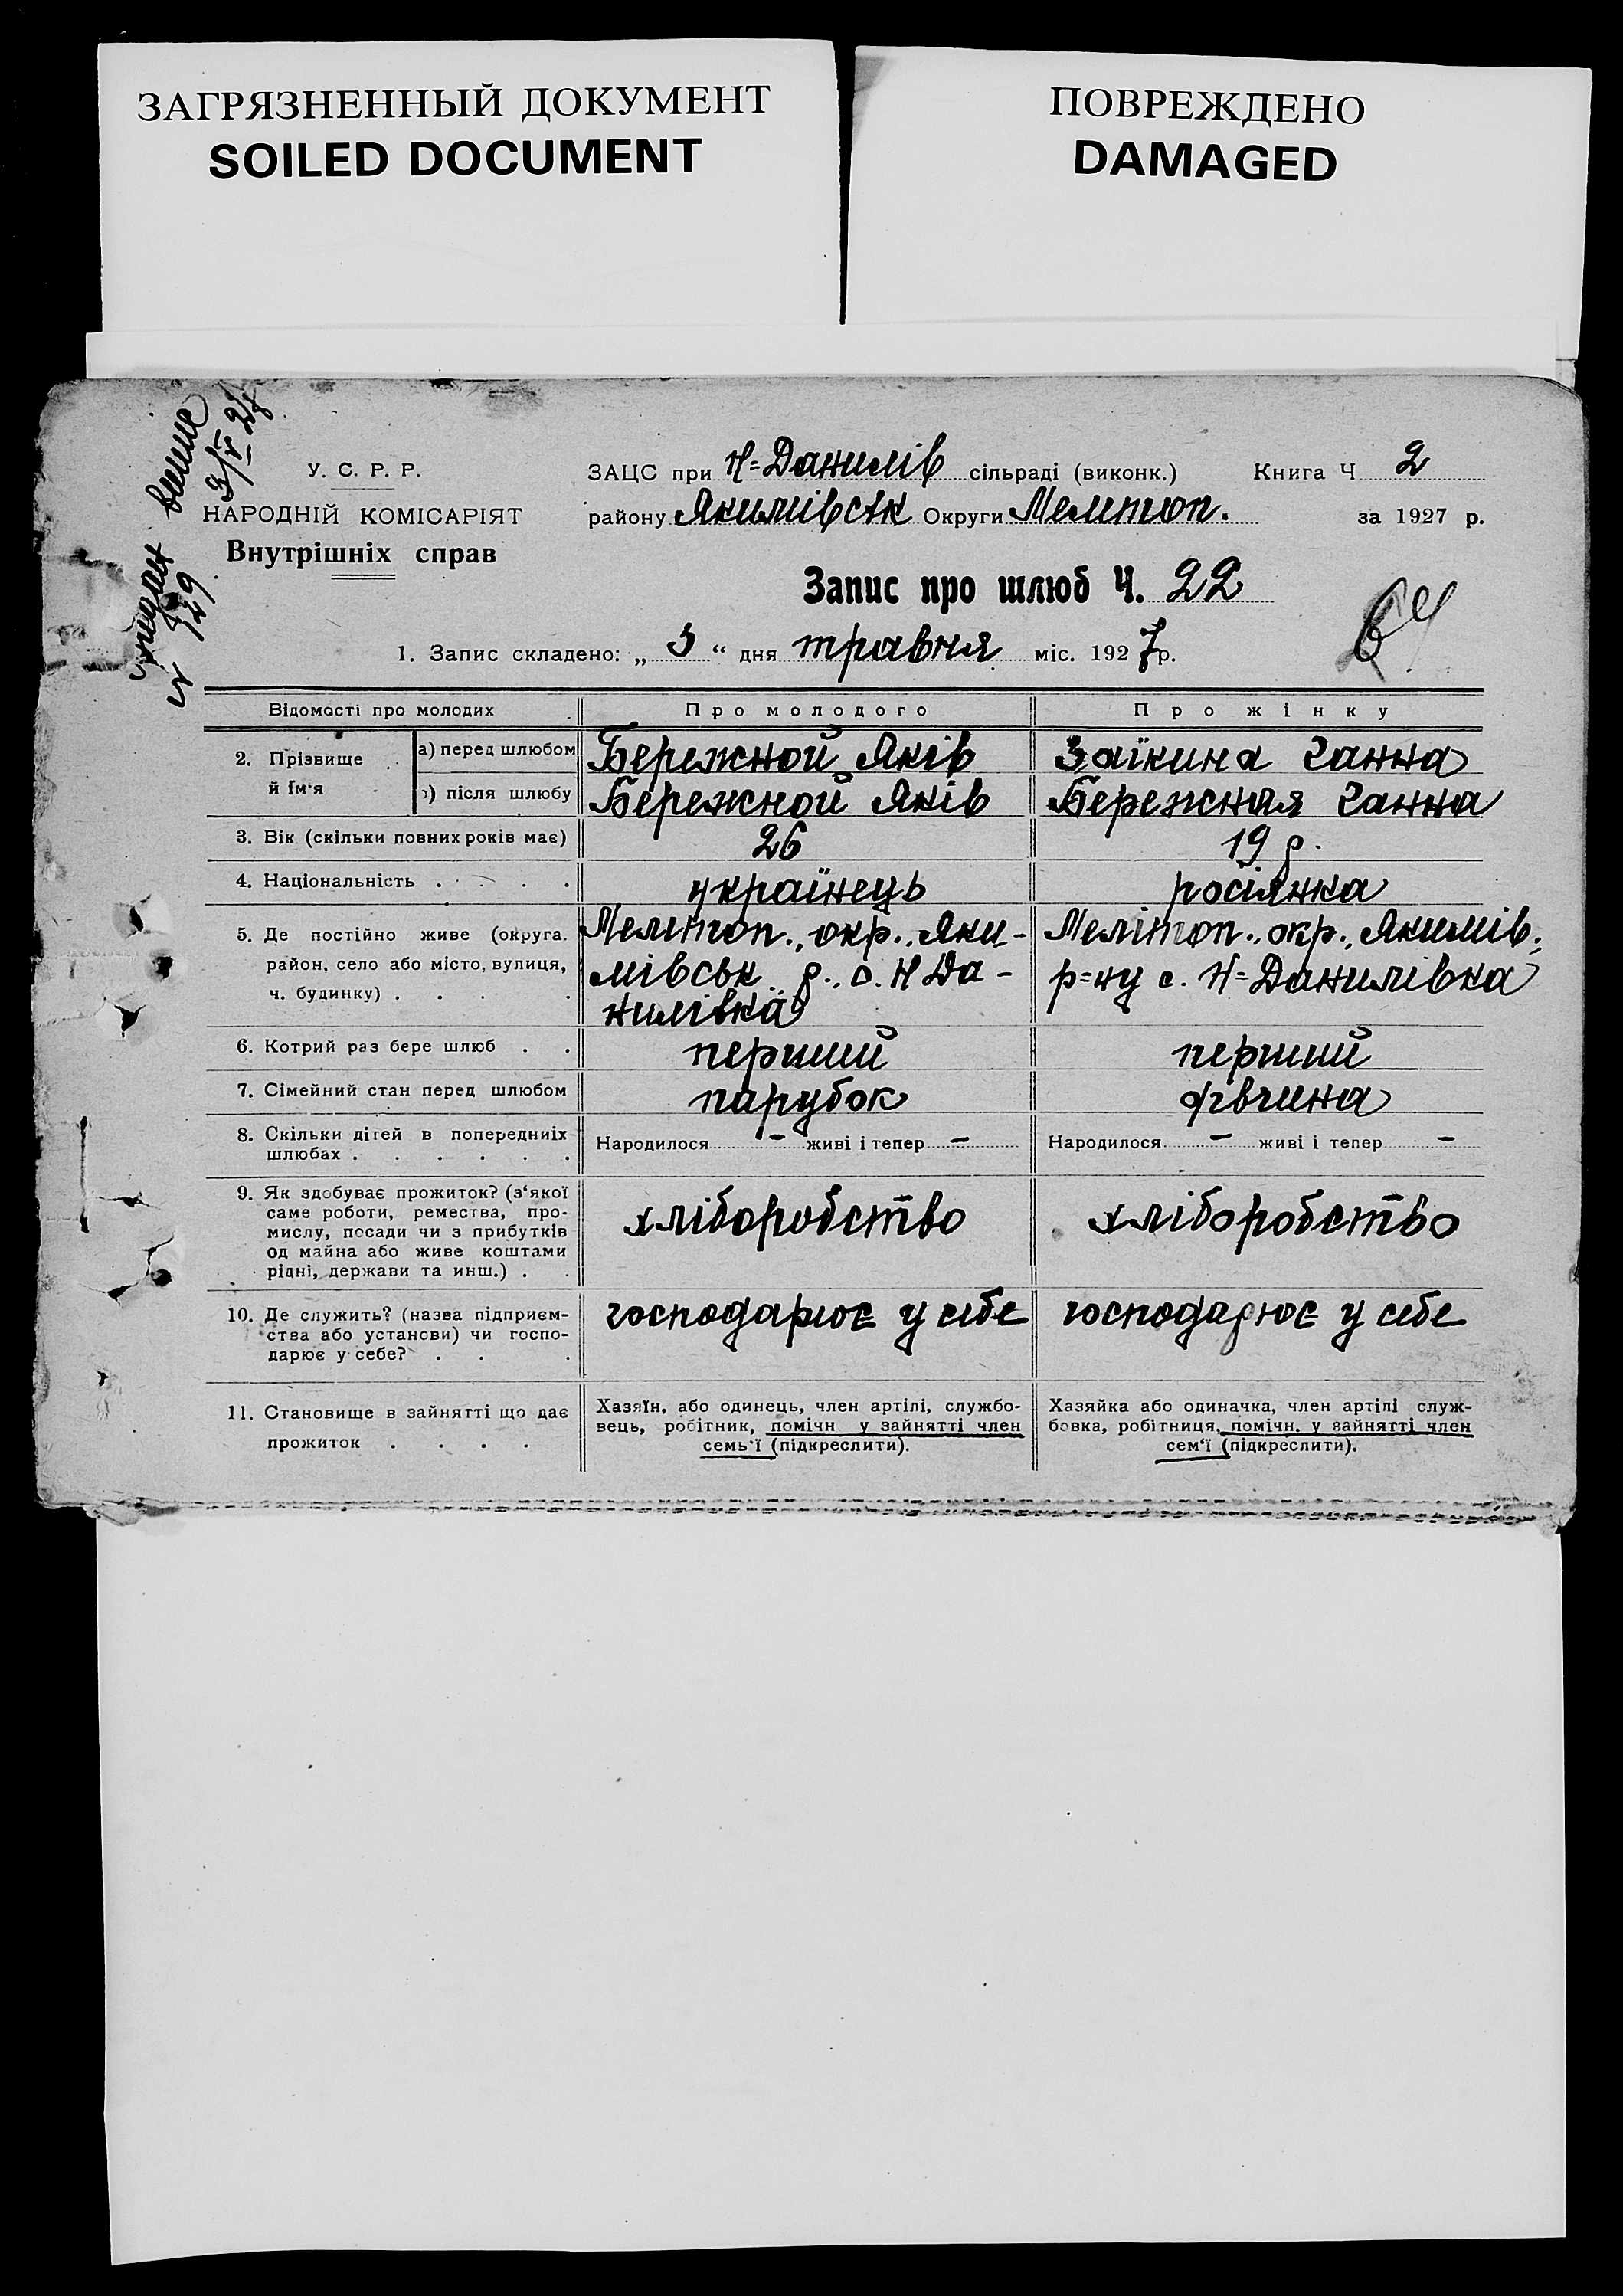 ЗАГРЯЗНЕННЫЙ ДОКУМЕНТ
SOILED DOCUMENT
ПОВРЕЖДЕНО
DAMAGED
3/V 27
129
У. С. Р. Р.
НАРОДНІЙ КОМІСАРІЯТ
Внутрішніх справ
ЗАЦС при Н=Данилів сільраді (виконк.) Книга Ч 2
району Якимівськ Округи Мелитоп. за 1927 р.
Запис про шлюб Ч. 22
1. Запис складено: „ 3 “ дня травня міс. 1927 р.
Відомості про молодих
Про молодого
Про жінку
2. Прізвище й Їм‘я
а) перед шлюбом
Бережной Яків
Заїкина Ганна
б) після шлюбу
Бережной Яків
Бережная Ганна
3. Вік (скільки повних років має)
26
19 р.
4. Національність . . . .
українець
росіянка
5. Де постійно живе (округа.
район, село або місто, вулиця,
ч. будинку) . . . .
Мелітоп., окр., Яки-
мівськ р., с. Н Да-
нилівка
Мелітоп., окр., Якимів.,
р=ну с. Н=Данилівка
6. Котрий раз бере шлюб . .
перший
перший
7. Сімейний стан перед шлюбом
парубок
дівчина
8. Скільки дітей в попередниіх
шлюбах . . . . . .
Народилося – живі і тепер –
Народилося – живі і тепер –
9. Як здобуває прожиток? (з‘якої
саме роботи, ремества, про-
мислу, посади чи з прибутків
од майна або живе коштами
рідні, держави та инш.) . .
хліборобство
хліборобство
10. Де служить? (назва підприєм-
ства або установи) чи госпо-
дарює у себе? . . .
господарює у себе
господарює у себе
11. Становище в зайнятті що дає
прожиток . . . .
Хазяїн, або одинець, член артілі, службо-
вець, робітник, помічн у зайнятті член
семь‘ї (підкреслити).
Хазяйка або одиначка, член артілі служ-
бовка, робітниця, помічн. у зайнятті член
сем‘ї (підкреслити).